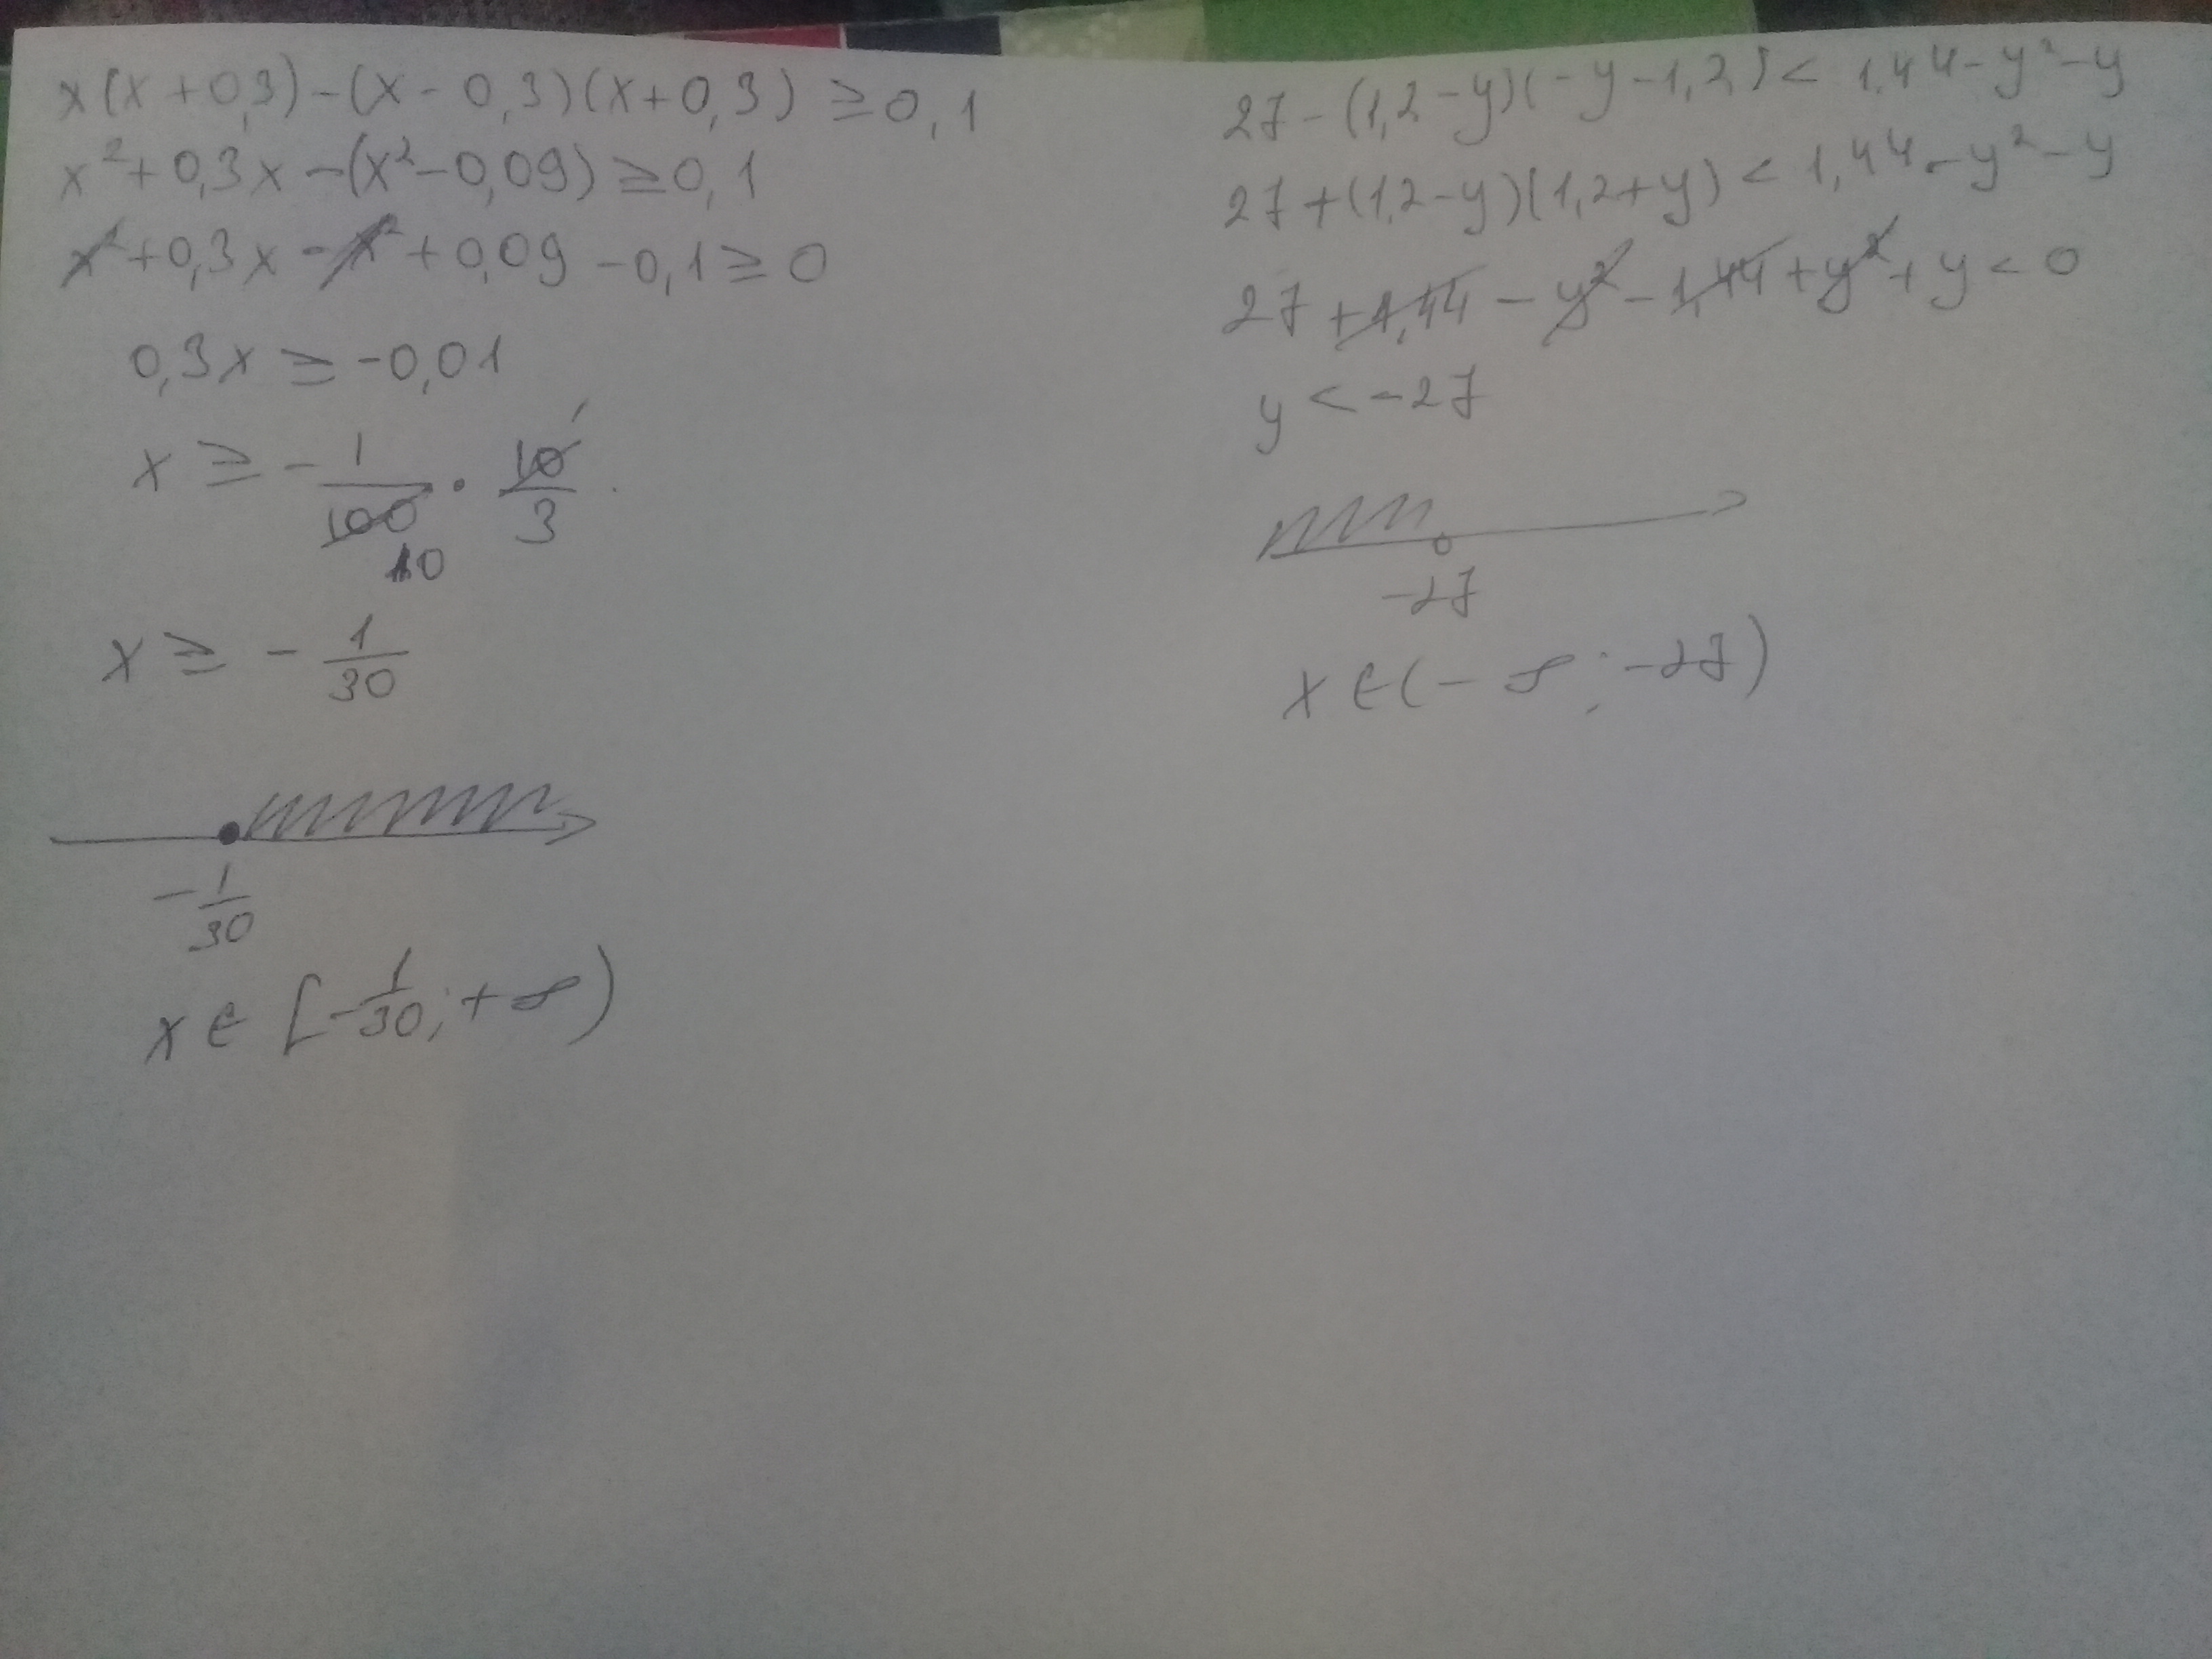 x(x+0,3)-(x-0,3)(x+0,3) ≥0,1
x²+0,3x-(x²-0,09) ≥0,1
x²+0,3x-x²+0,09-0,1≥0
0,3x ≥ -0,01
x ≥ - 1/100 · 10/3
1
10
x ≥ - 1/30
-1/30
x ∈ [-1/30; +∞)
27-(1,2-y)(-y-1,2)< 1,44-y²-y
27+(1,2-y)(1,2+y)< 1,44-y²-y
27+1,44-y²-1,44+y²+y<0
y < -27
-27
x ∈ (-∞; -27)